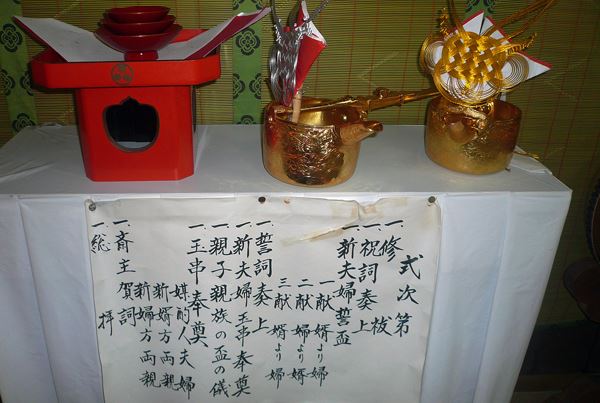 式次第
一、修祓
一、祝詞奏上
一、新夫婦誓盃
一献 婿より婦
二献 婦より婿
三献 婿より婦
一、誓詞奏上
一、新夫婦玉串奉奠
一、親子親族の盃の儀
一、玉串奉奠
媒酌人夫婦
新婿方両親
新婦方両親
一、斎主賀詞
一、総拝